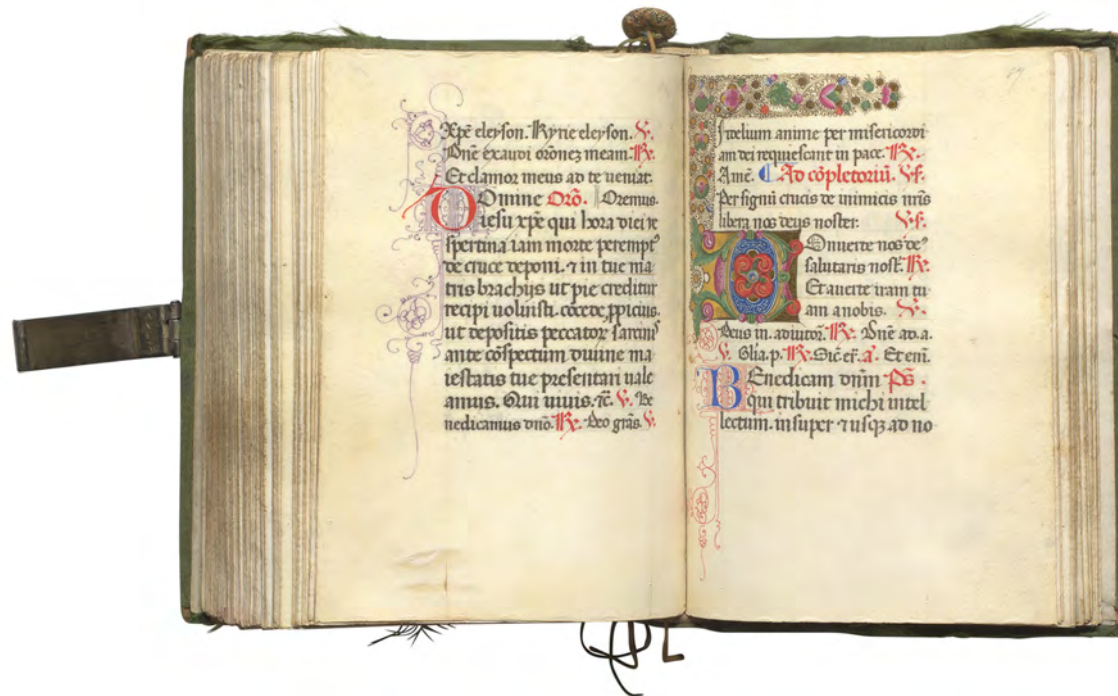 Xpē eleyson. Kyrie eleyson. V.
Dnē exaudi orōnez meam. R.
Et clamor meus ad te veniat.
Domine Orō. Oremus.
iesu xpē qui hora diei ve
spertina iam morte perempt⁹
de cruce deponi. ⁊ in tue ma
tris brachijs ut pie creditur
recipi uoluisti. cōcede ꝓpicius.
ut depositis peccatoꝝ sarcinis
ante cōspectum diuine ma
iestatis tue presentari uale
amus. Qui uiuis. ⁊c. V. Be
nedicamus dnō. R. Deo grās. V.
Fidelium anime per misericordi
am dei requiescant in pace. R.
Amē. Ad cōpletoriū. V.
Per signū crucis de inimicis nrīs
libera nos deus noster: V.
Conuerte nos de⁹
salutaris nost̄. R.
Et auerte iram tu
am a nobis. V.
Deus in. adiutoꝝ. R. Dnē ad. a.
V. Glīa. p. R. Sic̄ er̄. a. Et eni.
Benedicam dnm Ps.
qui tribuit michi intel
lectum. insuper ⁊ usqꝫ ad no